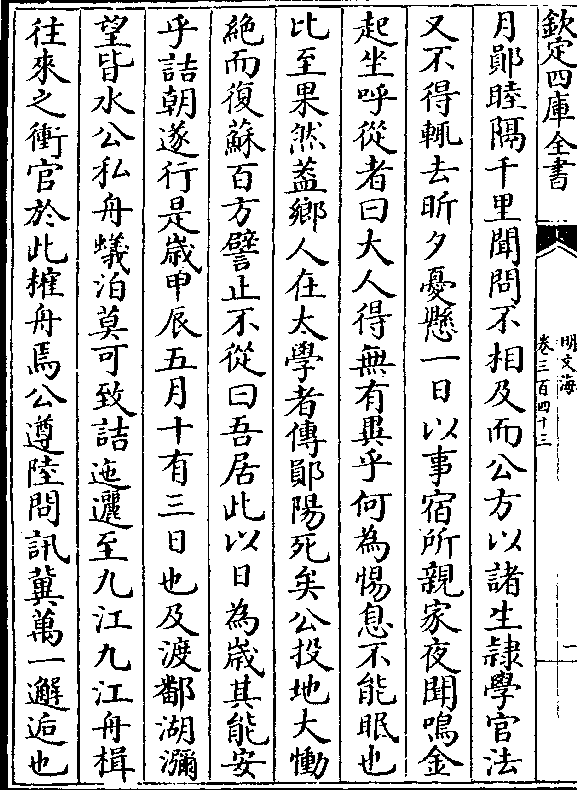 欽定四庫全書
明文海
卷三百四十三
二
月鄖睦隔千里聞問不相及而公方以諸生隷學官法
又不得輒去昕夕憂懸一日以事宿所親家夜聞鳴金
起坐呼從者曰大人得無有異乎何為惕息不能眠也
比至果然蓋鄉人在太學者傳鄖陽死矣公投地大慟
絶而復蘇百方譬止不從曰吾居此以日為歲其能安
乎詰朝遂行是歲甲辰五月十有三日也及渡鄱湖瀰
望皆水公私舟蟻泊莫可致詰迤邐至九江九江舟楫
往來之衝官於此榷舟焉公遵陸問訊冀萬一邂逅也